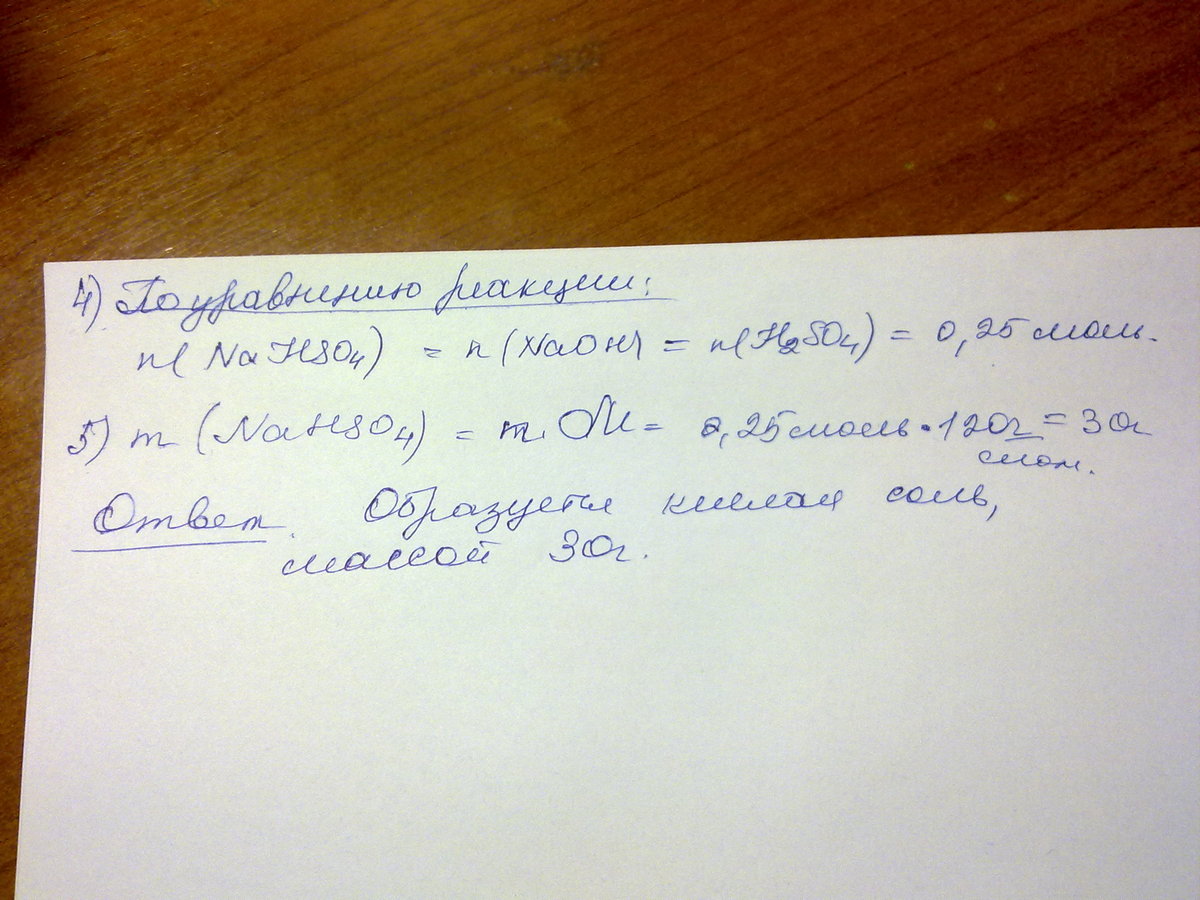 4) По уравнению реакции:
n(NaHSO₄) = n(NaOH) = n(H₂SO₄) = 0,25 моль.
5) m(NaHSO₄) = m.M = 0,25 моль • 120 г/мол. = 30г
Ответ. Образуется кислая соль,
массой 30г.